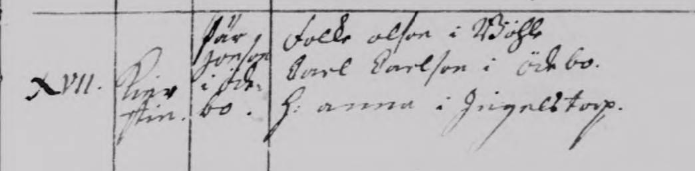 XVII. Kierstin. Pär Jonson i Ödebo. Folke olson i Böhle
Carl Carlson i Ödebo.
H: anna i Ingelstorp.